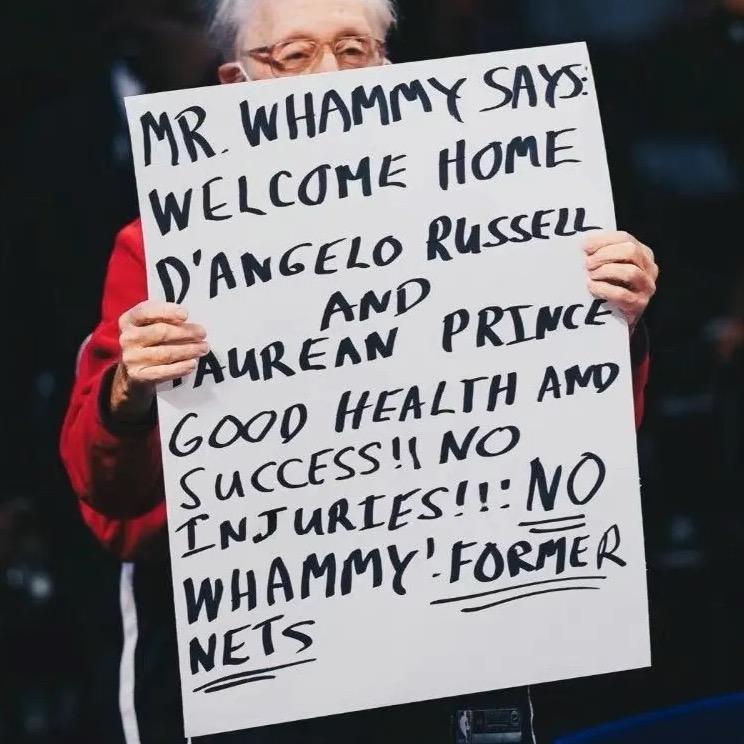 MR. WHAMMY SAYS:
WELCOME HOME
D'ANGELO RUSSELL
AND
TAUREAN PRINCE
GOOD HEALTH AND
SUCCESS!! NO
INJURIES!!! NO
WHAMMY! FORMER
NETS